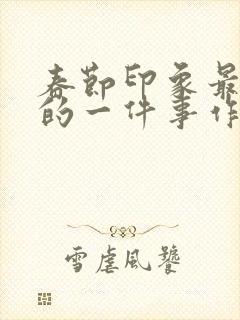 春节印象最
的一件事作
雪虐风饕